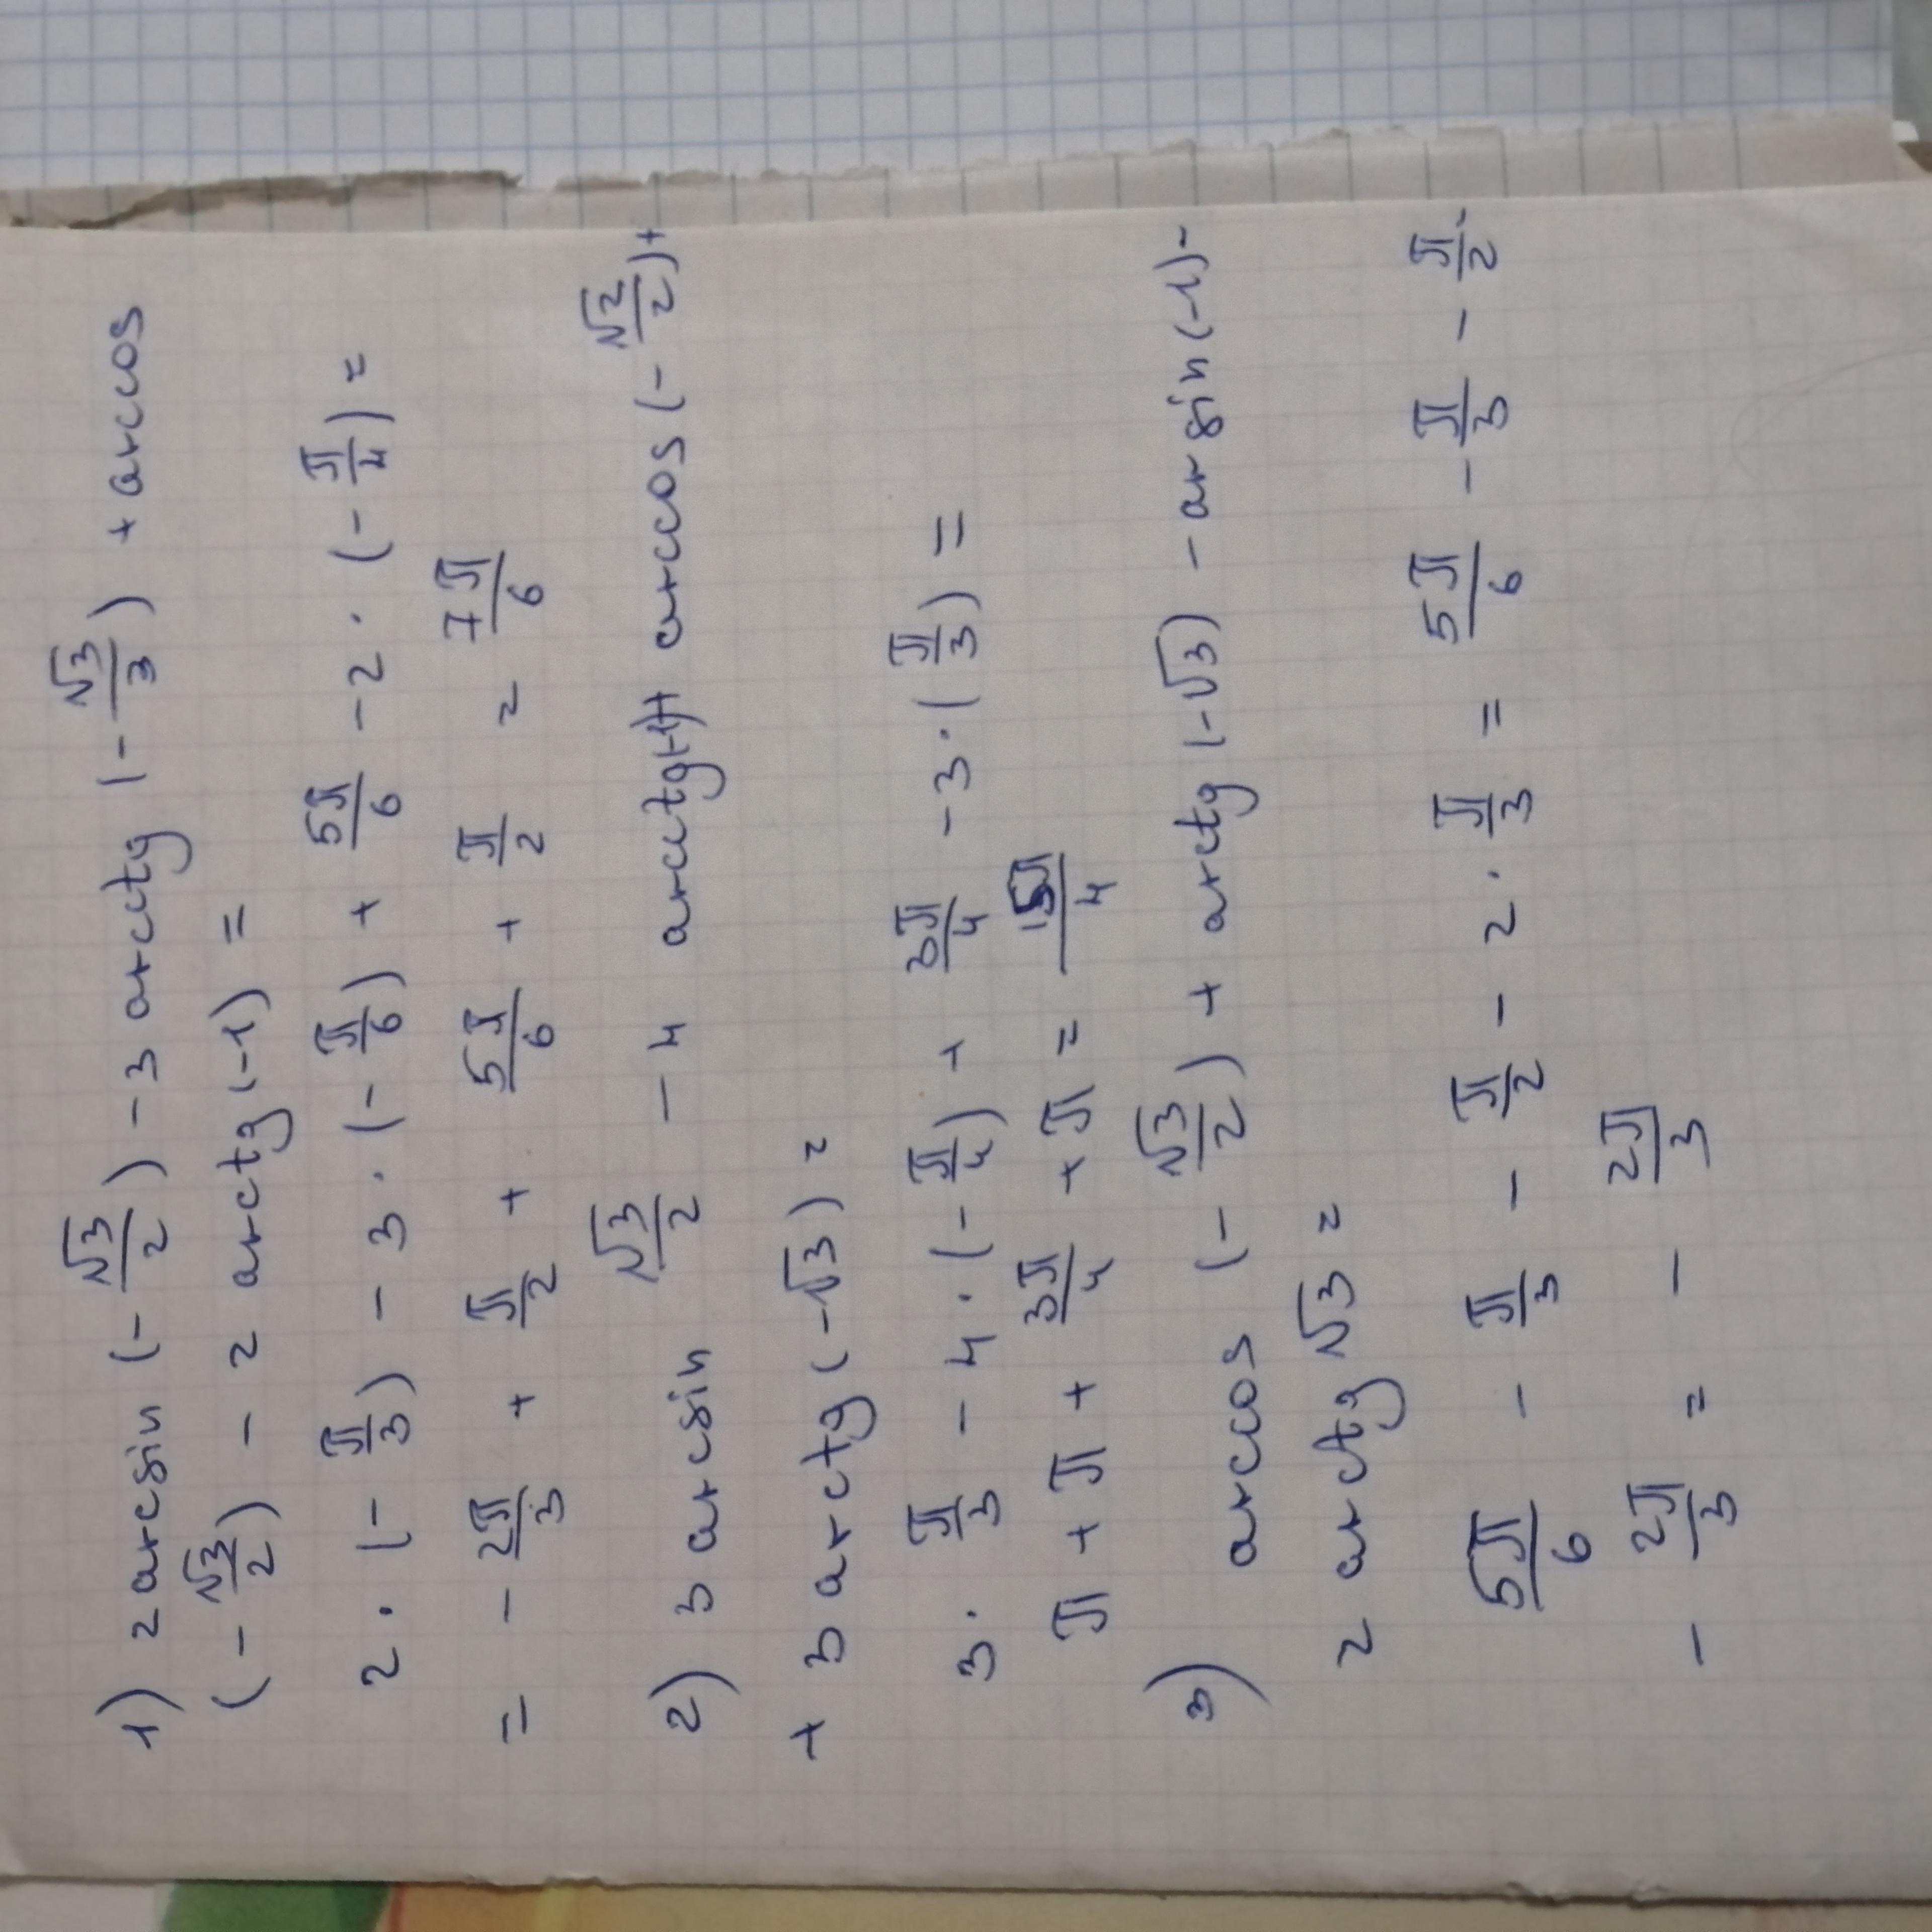 1) 2 arcsin (-√3/2) - 3 arcctg (-√3/3) + arccos
(-√3/2) - 2 arctg (-1) =
2 · (-π/3) - 3 · (-π/6) + 5π/6 - 2 · (-π/4) =
= - 2π/3 + π/2 + 5π/6 + π/2 = 7π/6
2) 3 arcsin √3/2 - 4 arcctg(-1)+ arccos (-√2/2)+
+ 3 arctg (-√3) =
3 · π/3 - 4 · (-π/4) + 3π/4 - 3 · (π/3) =
π + π + 3π/4 + π = 15π/4
3) arccos (-√3/2) + arctg (-√3) - arsin (-1) -
2 arctg √3 =
5π/6 - π/3 - π/2 - 2 · π/3 = 5π/6 - π/3 - π/2 -
- 2π/3 = - 2π/3